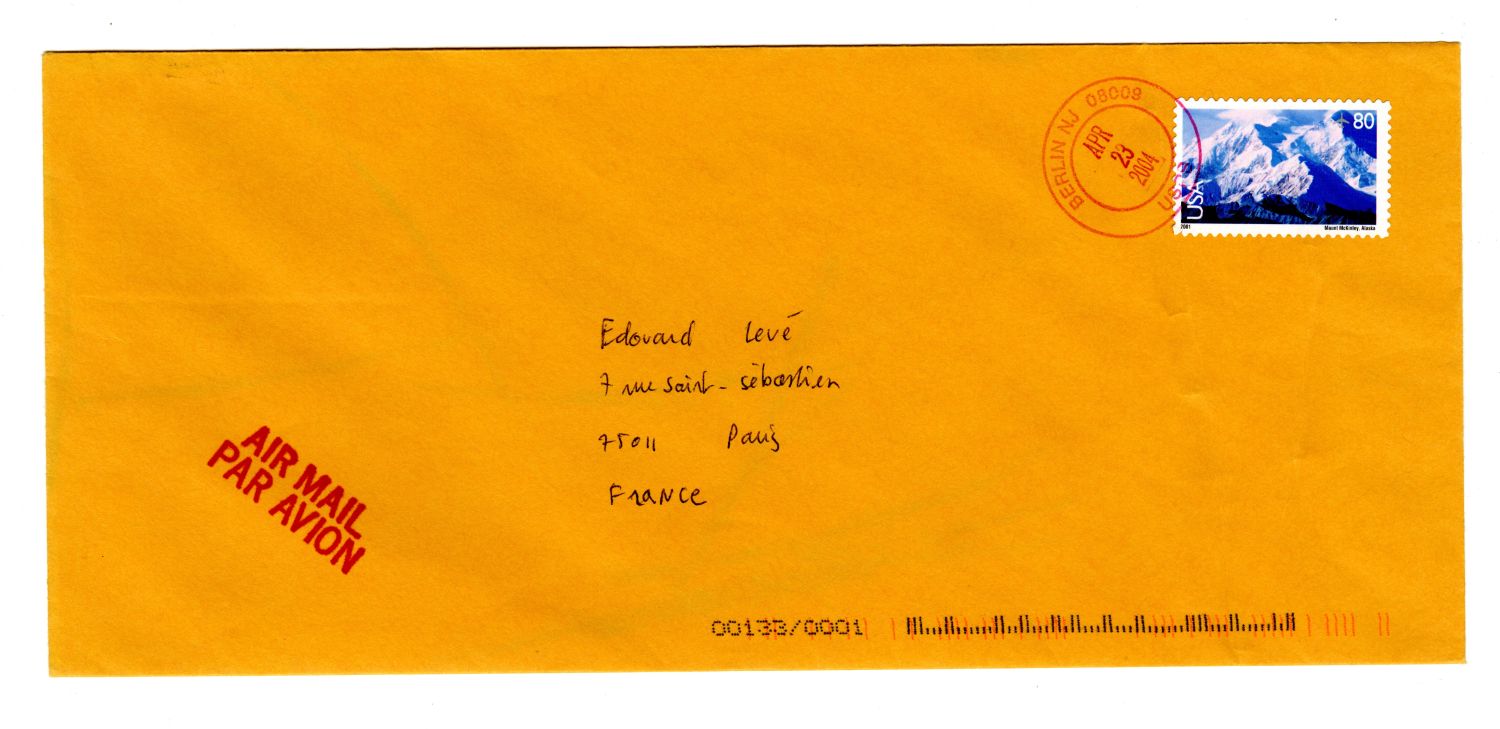 BERLIN NJ 08009
APR
23
2004
USPS
80
USA
2001
Mount McKinley, Alaska
Edouard Levé
7 rue Saint-Sébastien
75011 Paris
France
AIR MAIL
PAR AVION
00133/0001